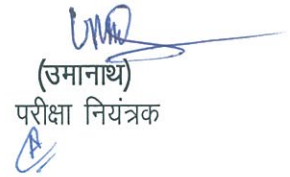 (उमानाथ)
परीक्षा नियंत्रक